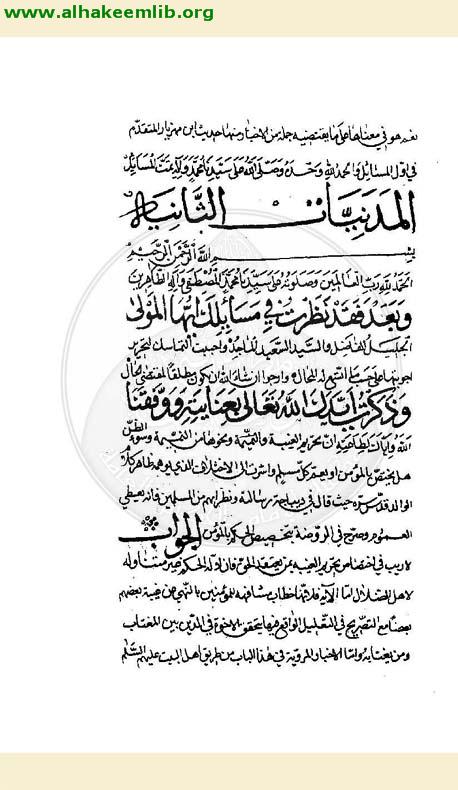 www.alhakeemlib.org
نعم هو في معناها على ما يقتضيه جملة من الاخبار منها حديث ابن مهزيار المتقدم
في اول المسائل والحمد لله وحده وصلى الله على سيدنا محمد واله تمت المسائل
المدنيات الثانية
بسم الله الرحمن الرحيم
الحمد لله رب العالمين وصلوته على سيدنا محمد المصطفى واله الطاهرين
وبعد فقد نظرت في مسائلك ايها المولى
الجليل الفاضل والسيد السعيد الماجد واجبت التماسك لتحرير
اجوبتها على حسب ما اتسع له المجال وارجوا ان شاء الله ان يكون مطلقا لمقتضى الحال
وذكرت ايدك الله تعالى بعنايته ووفقنا
الله واياك لطاعته ان تحريم الغيبة والنميمة ونحوها من التهمة وسوء الظن
هل يختص بالمؤمن او يعم كل مسلم واشرت الى الاختلاف الذي يوهمه ظاهر كلام
الوالد قدس سره حيث قال في ديباجة رسالة ونظرائهم من المسلمين فانه يعطي
العموم وصرح في الروضة بتخصيص الحكم بالمؤمن الجواب
لا ريب في اختصاص تحريم الغيبة بمن يعتقد الحق فان ادلة الحكم غير متناولة
لاهل الضلال اما الآية فلانها خطاب مشافهة للمؤمنين بالنهي عن غيبة بعضهم
بعضا مع التصريح في التعليل الواقع فيها بتحقق الاخوة في الدين بين المغتاب
ومن يغتابه واما الاخبار المروية في هذا الباب من طريق اهل البيت عليهم السلام